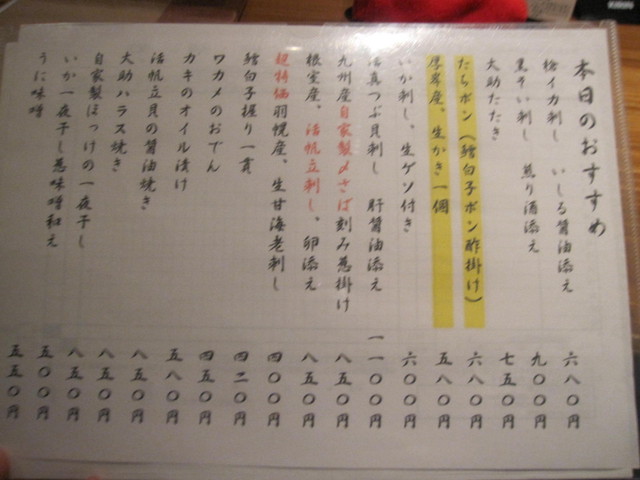 本日のおすすめ
槍イカ刺し いしる醤油添え 六八〇円
黒そい刺し 煎り酒添え 九〇〇円
大助たたき 七五〇円
たらポン(鱈白子ポン酢掛け) 六八〇円
厚岸産、生かき一個 五八〇円
いか刺し、生ゲソ付き 六〇〇円
活真つぶ貝刺し 肝醤油添え 一一〇〇円
九州産自家製〆さば刻み葱掛け 八五〇円
根室産、活帆立刺し、卵添え 八五〇円
超特価羽幌産、生甘海老刺し 四〇〇円
鱈白子握り一貫 四二〇円
ワカメのおでん 四五〇円
カキのオイル漬け 五八〇円
活帆立貝の醤油焼き 八五〇円
大助ハラス焼き 八五〇円
自家製ほっけの一夜干し 八五〇円
いか一夜干し葱味噌和え 五〇〇円
うに味噌 五五〇円